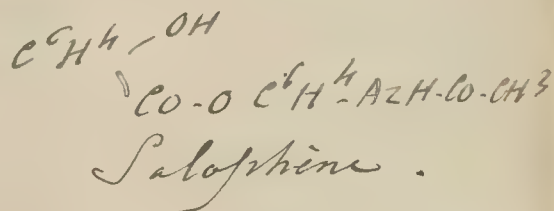 C⁶H⁴ - OH
CO - O C⁶H⁴ - AzH - CO - CH³
Salophène .